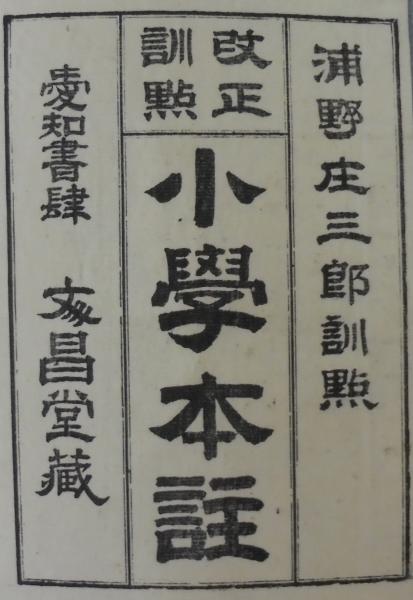 浦野庄三郎訓點
改正
訓點
小學本註
愛知書肆 文昌堂藏